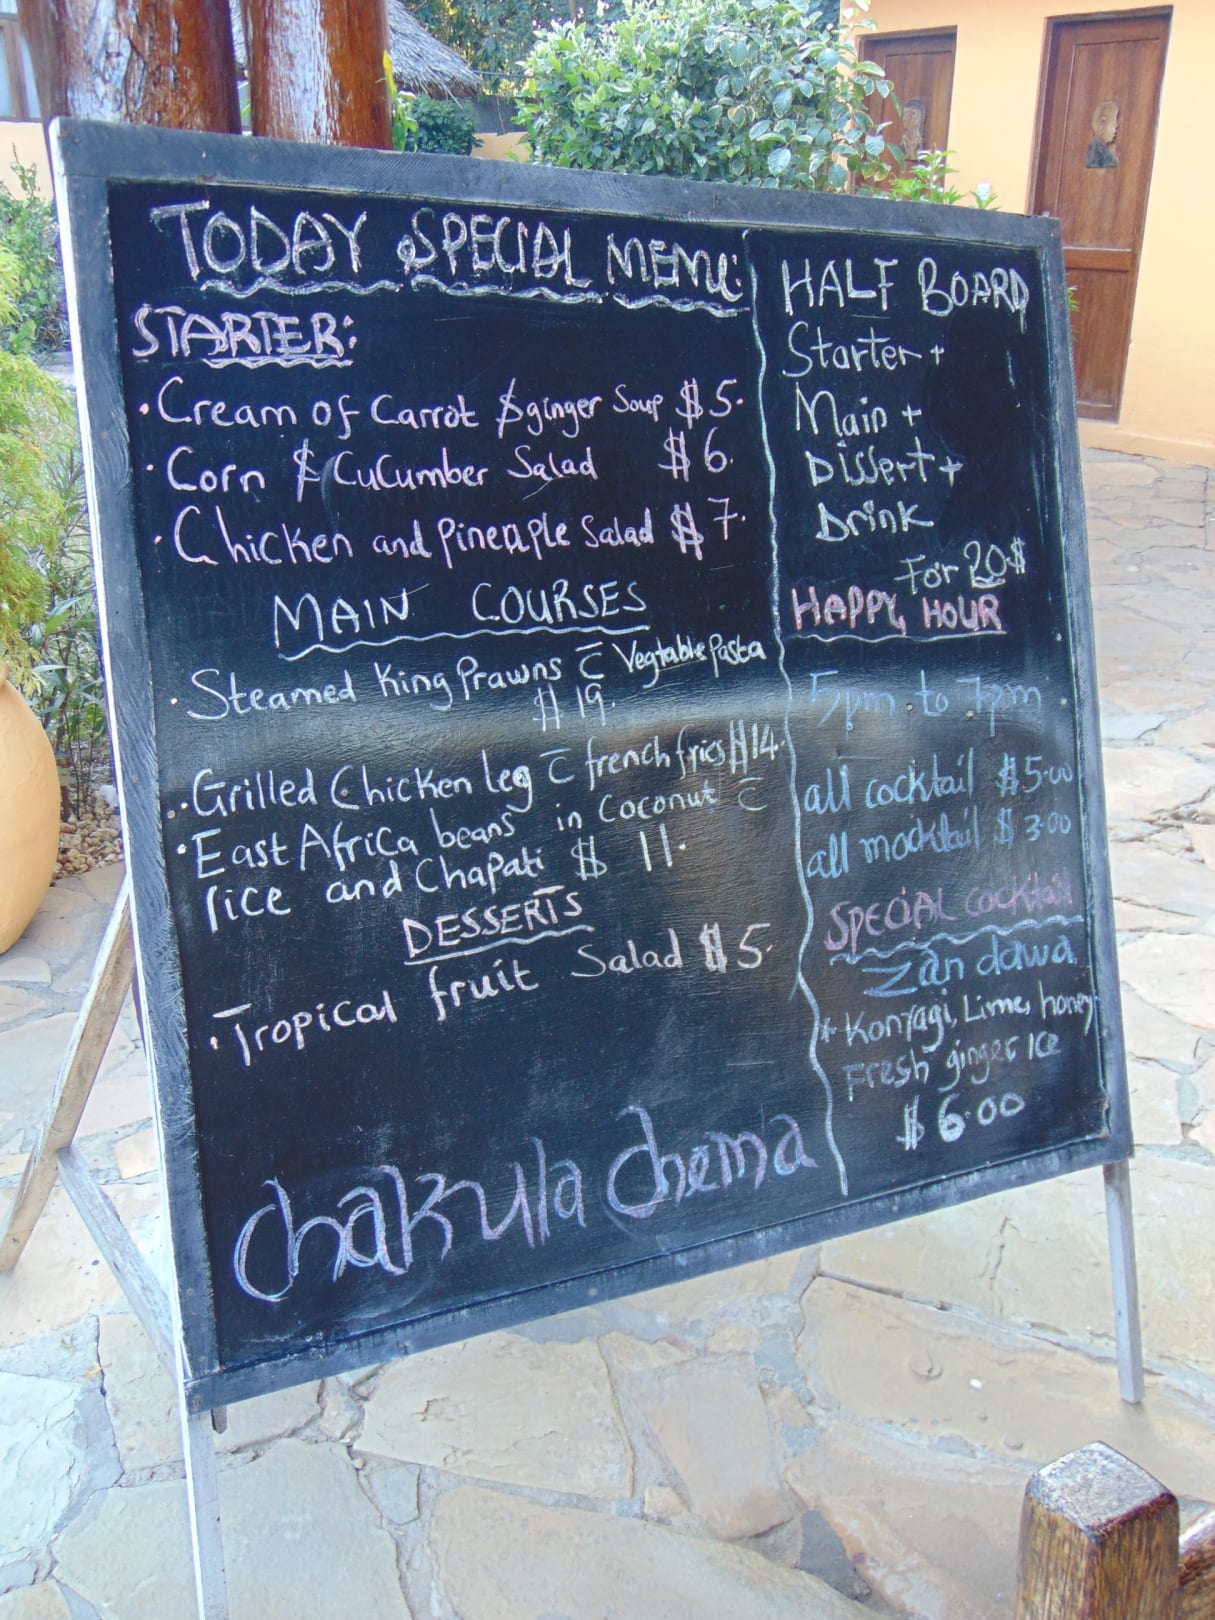 TODAY SPECIAL MENU:
STARTER:
·Cream of Carrot & ginger Soup $5.
·Corn & Cucumber Salad $6.
·Chicken and Pineaple Salad $7.
MAIN COURSES
·Steamed King Prawns c̄ Vegtable Pasta
$19.
·Grilled Chicken leg c̄ french fries $14.
·East Africa beans in Coconut c̄
rice and Chapati $11.
DESSERTS
·Tropical fruit Salad $5.
Chakula Chema
HALF BOARD
Starter +
Main +
Dissert +
Drink
For 20$
HAPPY HOUR
5pm to 7pm
all cocktail $5.00
all mocktail $3.00
SPECIAL cocktail
Zan dawa
* Konyagi, Lime, honey
Fresh ginger, ice
$6.00